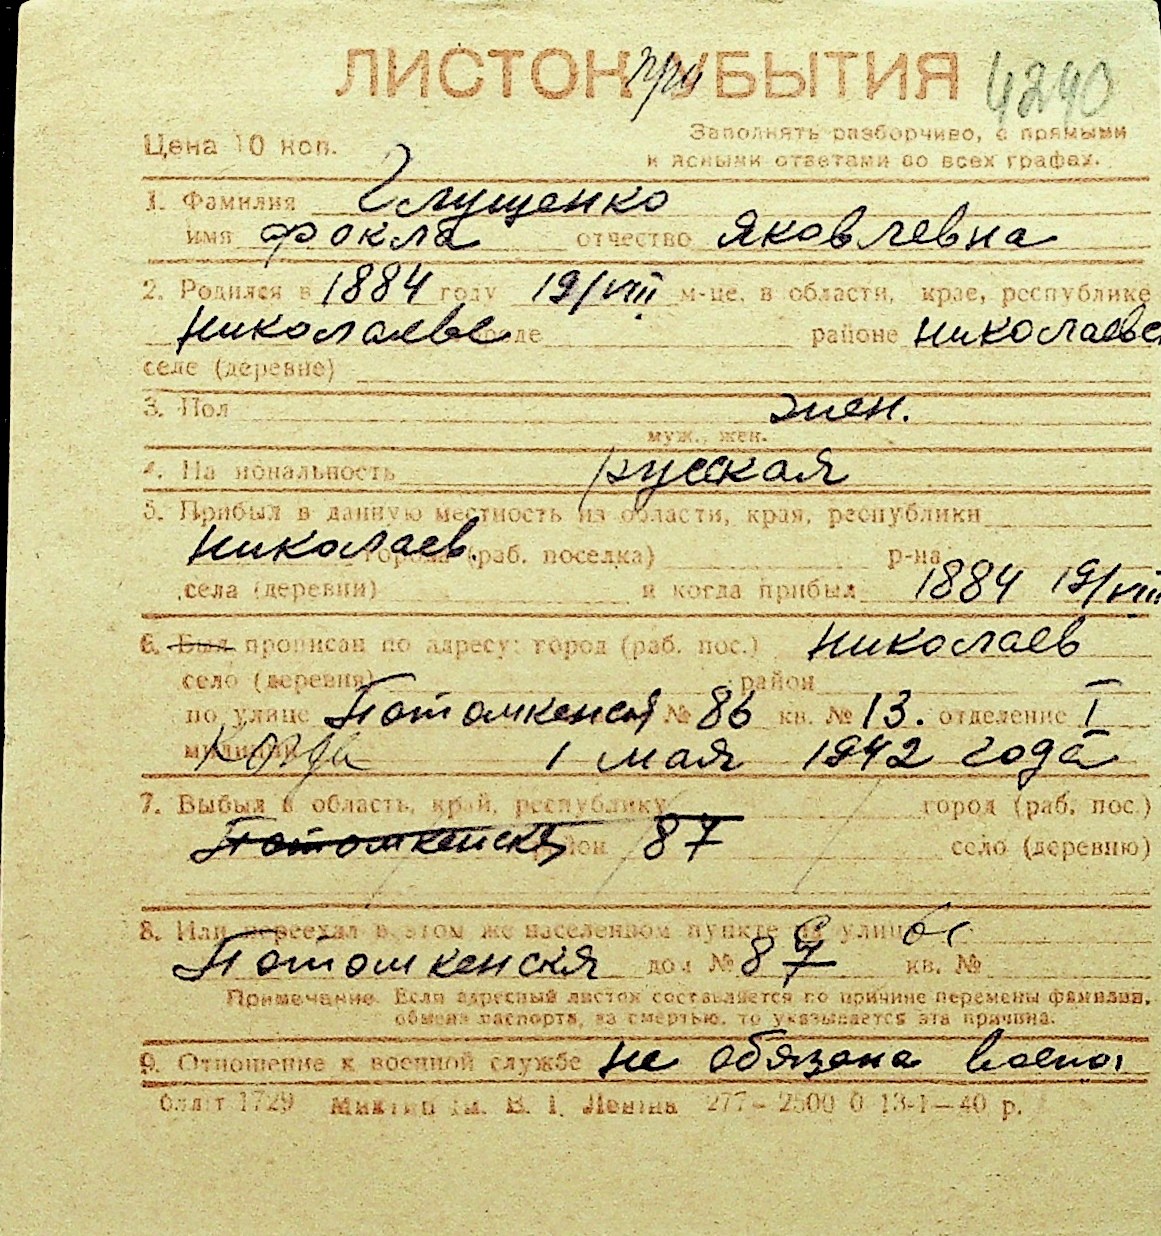 ЛИСТОК при УБЫТИЯ 4240
Цена 10 коп. Заполнять разборчиво, с прямыми
и ясными ответами во всех графах.
1. Фамилия Глущенко
имя Фокла отчество Яковлевна
2. Родился в 1884 году 19/VIII м-це, в области, крае, республике
Николаеве городе районе Николаевск
селе (деревне)
3. Пол жен.
муж., жен.
4. Национальность русская
5. Прибыл в данную местность из области, края, республики
Николаев. города (раб. поселка) р-на
села (деревни) и когда прибыл 1884 19/VIII
6. Был прописан по адресу: город (раб. пос.) Николаев
село (деревня) район
по улице Потомкенская № 86 кв. № 13. отделение I
милиции Когда 1 мая 1942 года
7. Выбыл в область, край, республику город (раб. пос.)
Потомкенскя район 87 село (деревню)
8. Или переехал в этом же населенном пункте на улицу
Потомкенскя дом № 87 кв. №
Примечание. Если адресный листок составляется по причине перемены фамилии,
обмена паспорта, за смертью, то указывается эта причина.
9. Отношение к военной службе не обязана воено
Обліт 1729 Миктип ім. В. І. Леніна 277—2500 0 13-1—40 р.